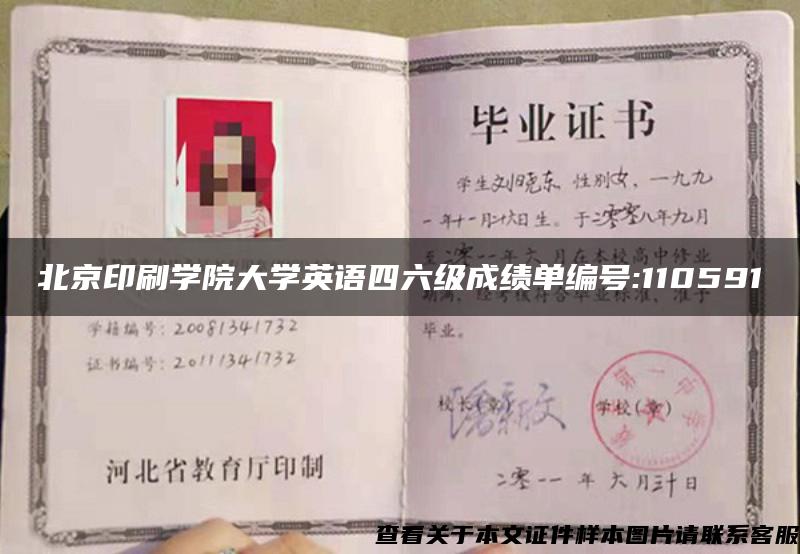 毕业证书
学生刘晓东 性别女，一九九
一年十一月二十六日生。于二零零八年九月
至二零一一年六月在本校高中修业
北京印刷学院大学英语四六级成绩单编号:110591
期满，经考核符合毕业标准，准予
毕业。
学籍编号：20081341732
证书编号：20111341732
校长(章)
学校(章)
第一中学
河北省教育厅印制
二零一一年六月三十日
查看关于本文证件样本图片请联系客服